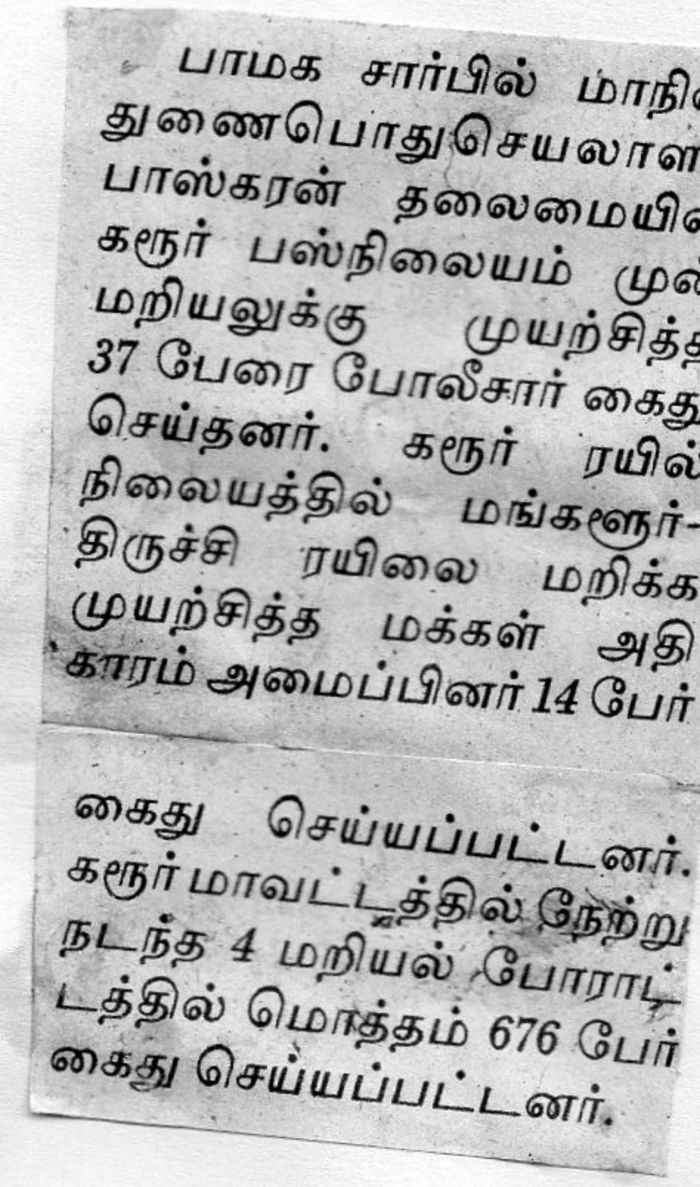 பாமக சார்பில் மாநில
துணைபொதுசெயலாள
பாஸ்கரன் தலைமையில
கரூர் பஸ்நிலையம் முன்
மறியலுக்கு முயற்சித்த
37 பேரை போலீசார் கைது
செய்தனர். கரூர் ரயில்
நிலையத்தில் மங்களூர்-
திருச்சி ரயிலை மறிக்க
முயற்சித்த மக்கள் அதி
காரம் அமைப்பினர் 14 பேர்
கைது செய்யப்பட்டனர்.
கரூர் மாவட்டத்தில் நேற்று
நடந்த 4 மறியல் போராட்
டத்தில் மொத்தம் 676 பேர்
கைது செய்யப்பட்டனர்.